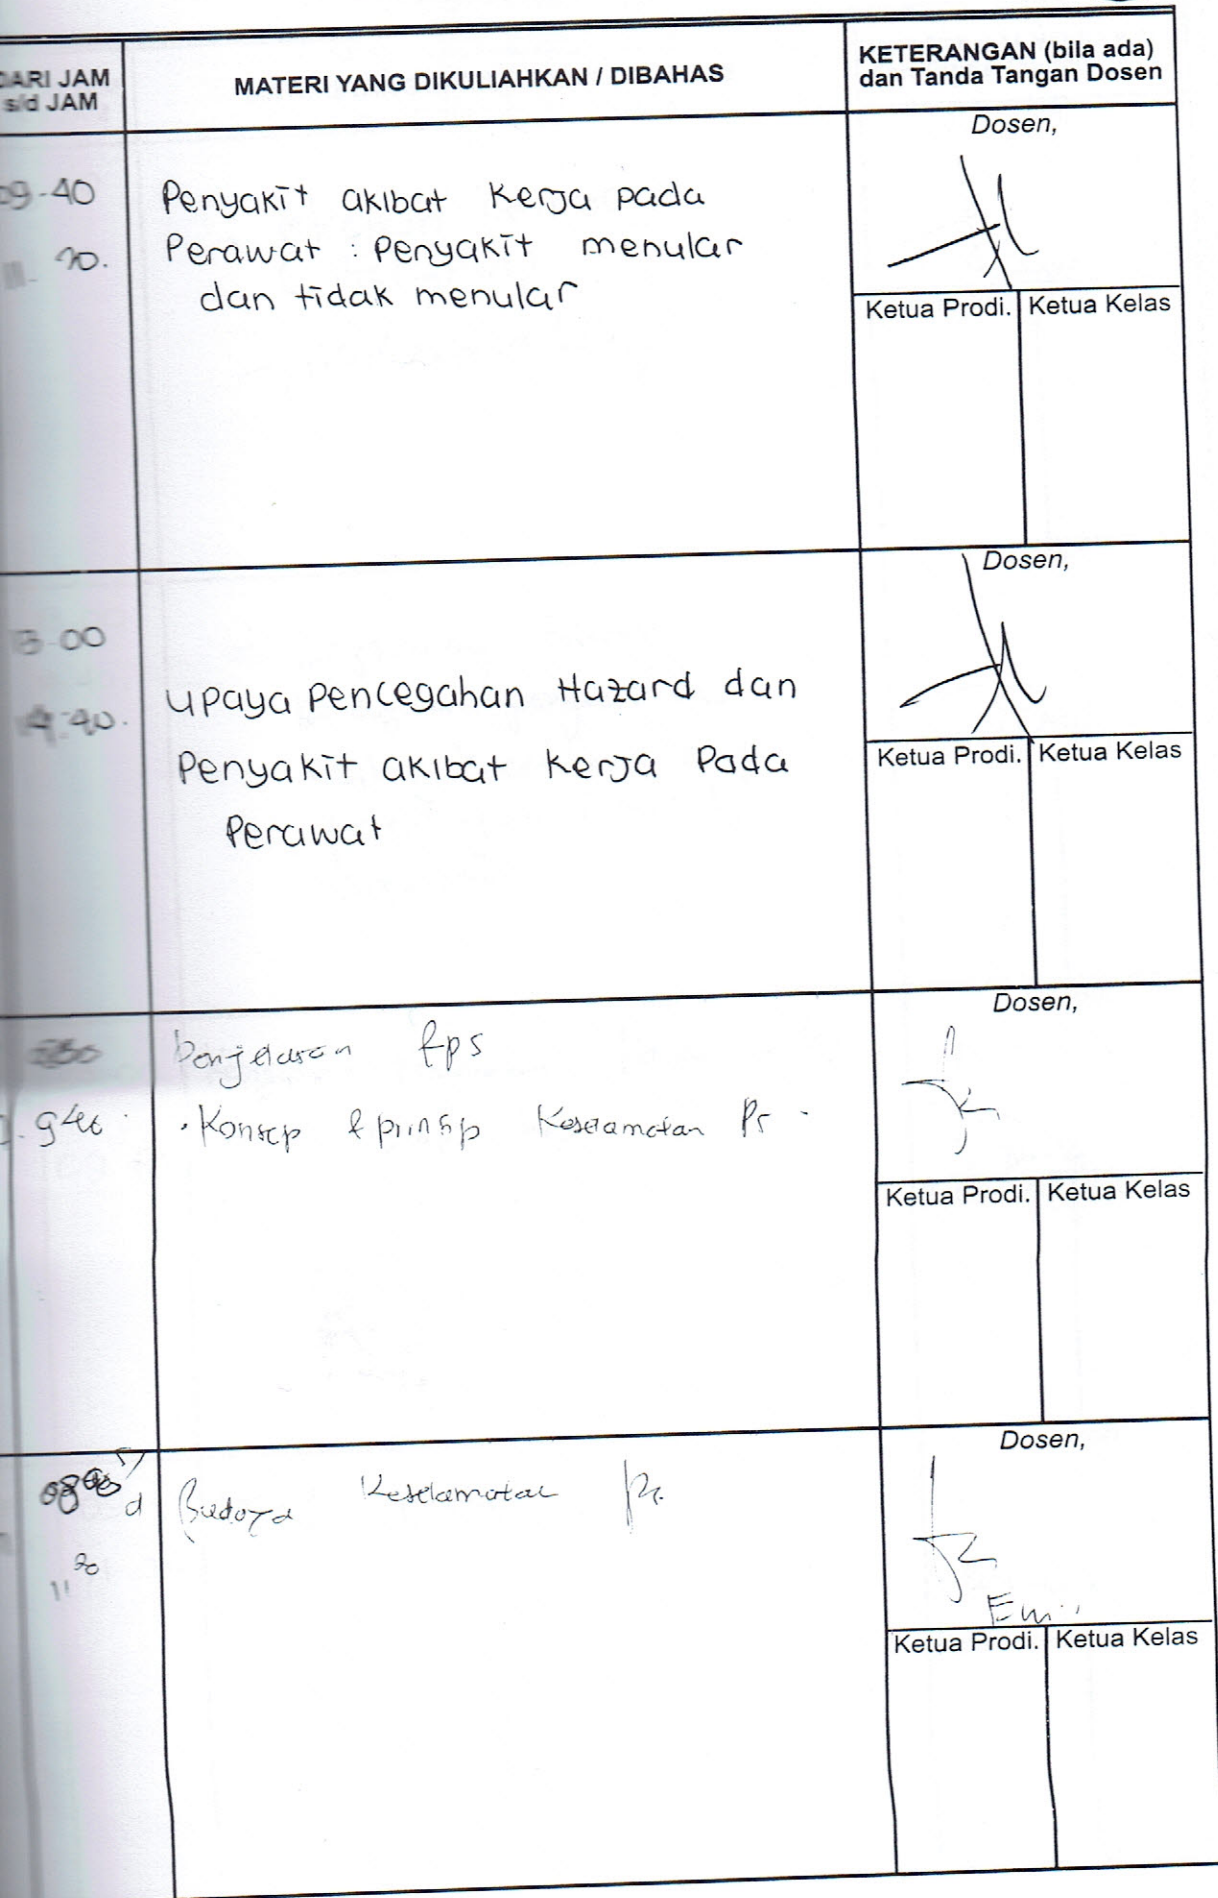 DARI JAM
s/d JAM
MATERI YANG DIKULIAHKAN / DIBAHAS
KETERANGAN (bila ada)
dan Tanda Tangan Dosen
09-40
Penyakit akibat kerja pada
Perawat : Penyakit menular
dan tidak menular
Dosen,
Ketua Prodi. Ketua Kelas
13-00
14-40.
Upaya Pencegahan Hazard dan
Penyakit akibat kerja Pada
Perawat
Dosen,
Ketua Prodi. Ketua Kelas
940
Penjelasan
• Konsep & prinsip Keselamatan Ps
Dosen,
Ketua Prodi. Ketua Kelas
Budaya Keselamatan
Dosen,
Ketua Prodi. Ketua Kelas